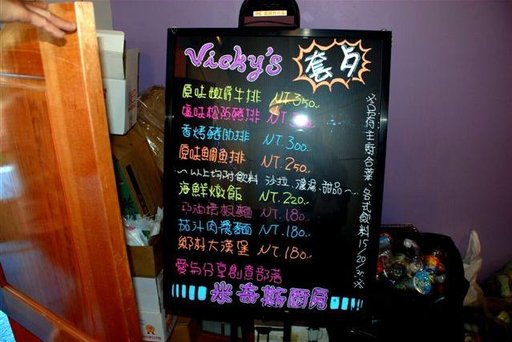 Vicky's 套点
原味嫩肩牛排 NT.350.
松阪豬排 NT.
香烤豬肋排 NT.300.
原味鯛魚排 NT.250.
~以上均附飲料 沙拉、濃湯、甜品~
海鮮燉飯 NT.220.
奶油培根麵 NT.180.
茄汁肉醬麵 NT.180.
鄉村大漢堡 NT.180.
愛与分享創意部落
米奇斯廚房